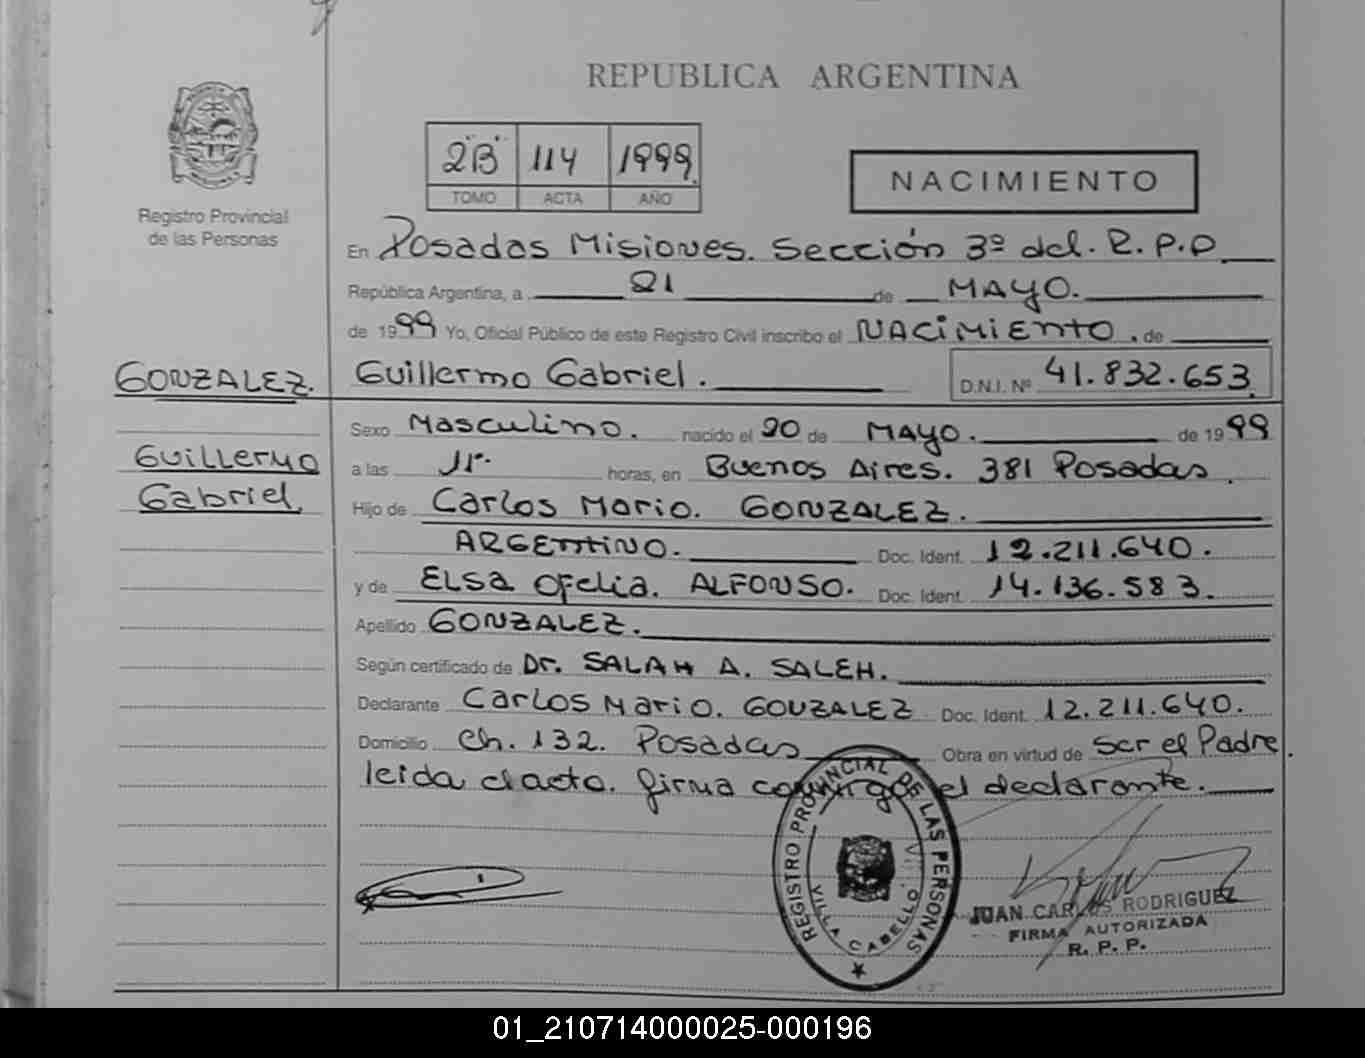 REPUBLICA ARGENTINA
"2B" 114 1999
TOMO ACTA AÑO
NACIMIENTO
Registro Provincial
de las Personas
En Posadas Misiones. Sección 3º del. R.P.P
República Argentina, a 21 de MAYO.
de 1999 Yo, Oficial Público de este Registro Civil inscribo el NACIMIENTO. de
GONZALEZ. Guillermo Gabriel. D.N.I. Nº 41.832.653.
Guillermo
Gabriel.
Sexo Masculino. nacido el 20 de MAYO. de 1999
a las 11. horas, en Buenos Aires. 381 Posadas.
Hijo de Carlos Mario. GONZALEZ.
ARGENTINO. Doc. Ident. 12.211.640.
y de ELSA OFelia. ALFONSO. Doc. Ident. 14.136.583.
Apellido GONZALEZ.
Según certificado de Dr. SALAH A. SALEH.
Declarante Carlos Mario. GONZALEZ Doc. Ident. 12.211.640.
Domicilio Ch. 132. Posadas Obra en virtud de Ser el Padre.
leida el acta. firma conmigo el declarante.
REGISTRO PROVINCIAL DE LAS PERSONAS
VILLA CABELLO
JUAN CARLOS RODRIGUEZ
FIRMA AUTORIZADA
R. P. P.
01_210714000025-000196